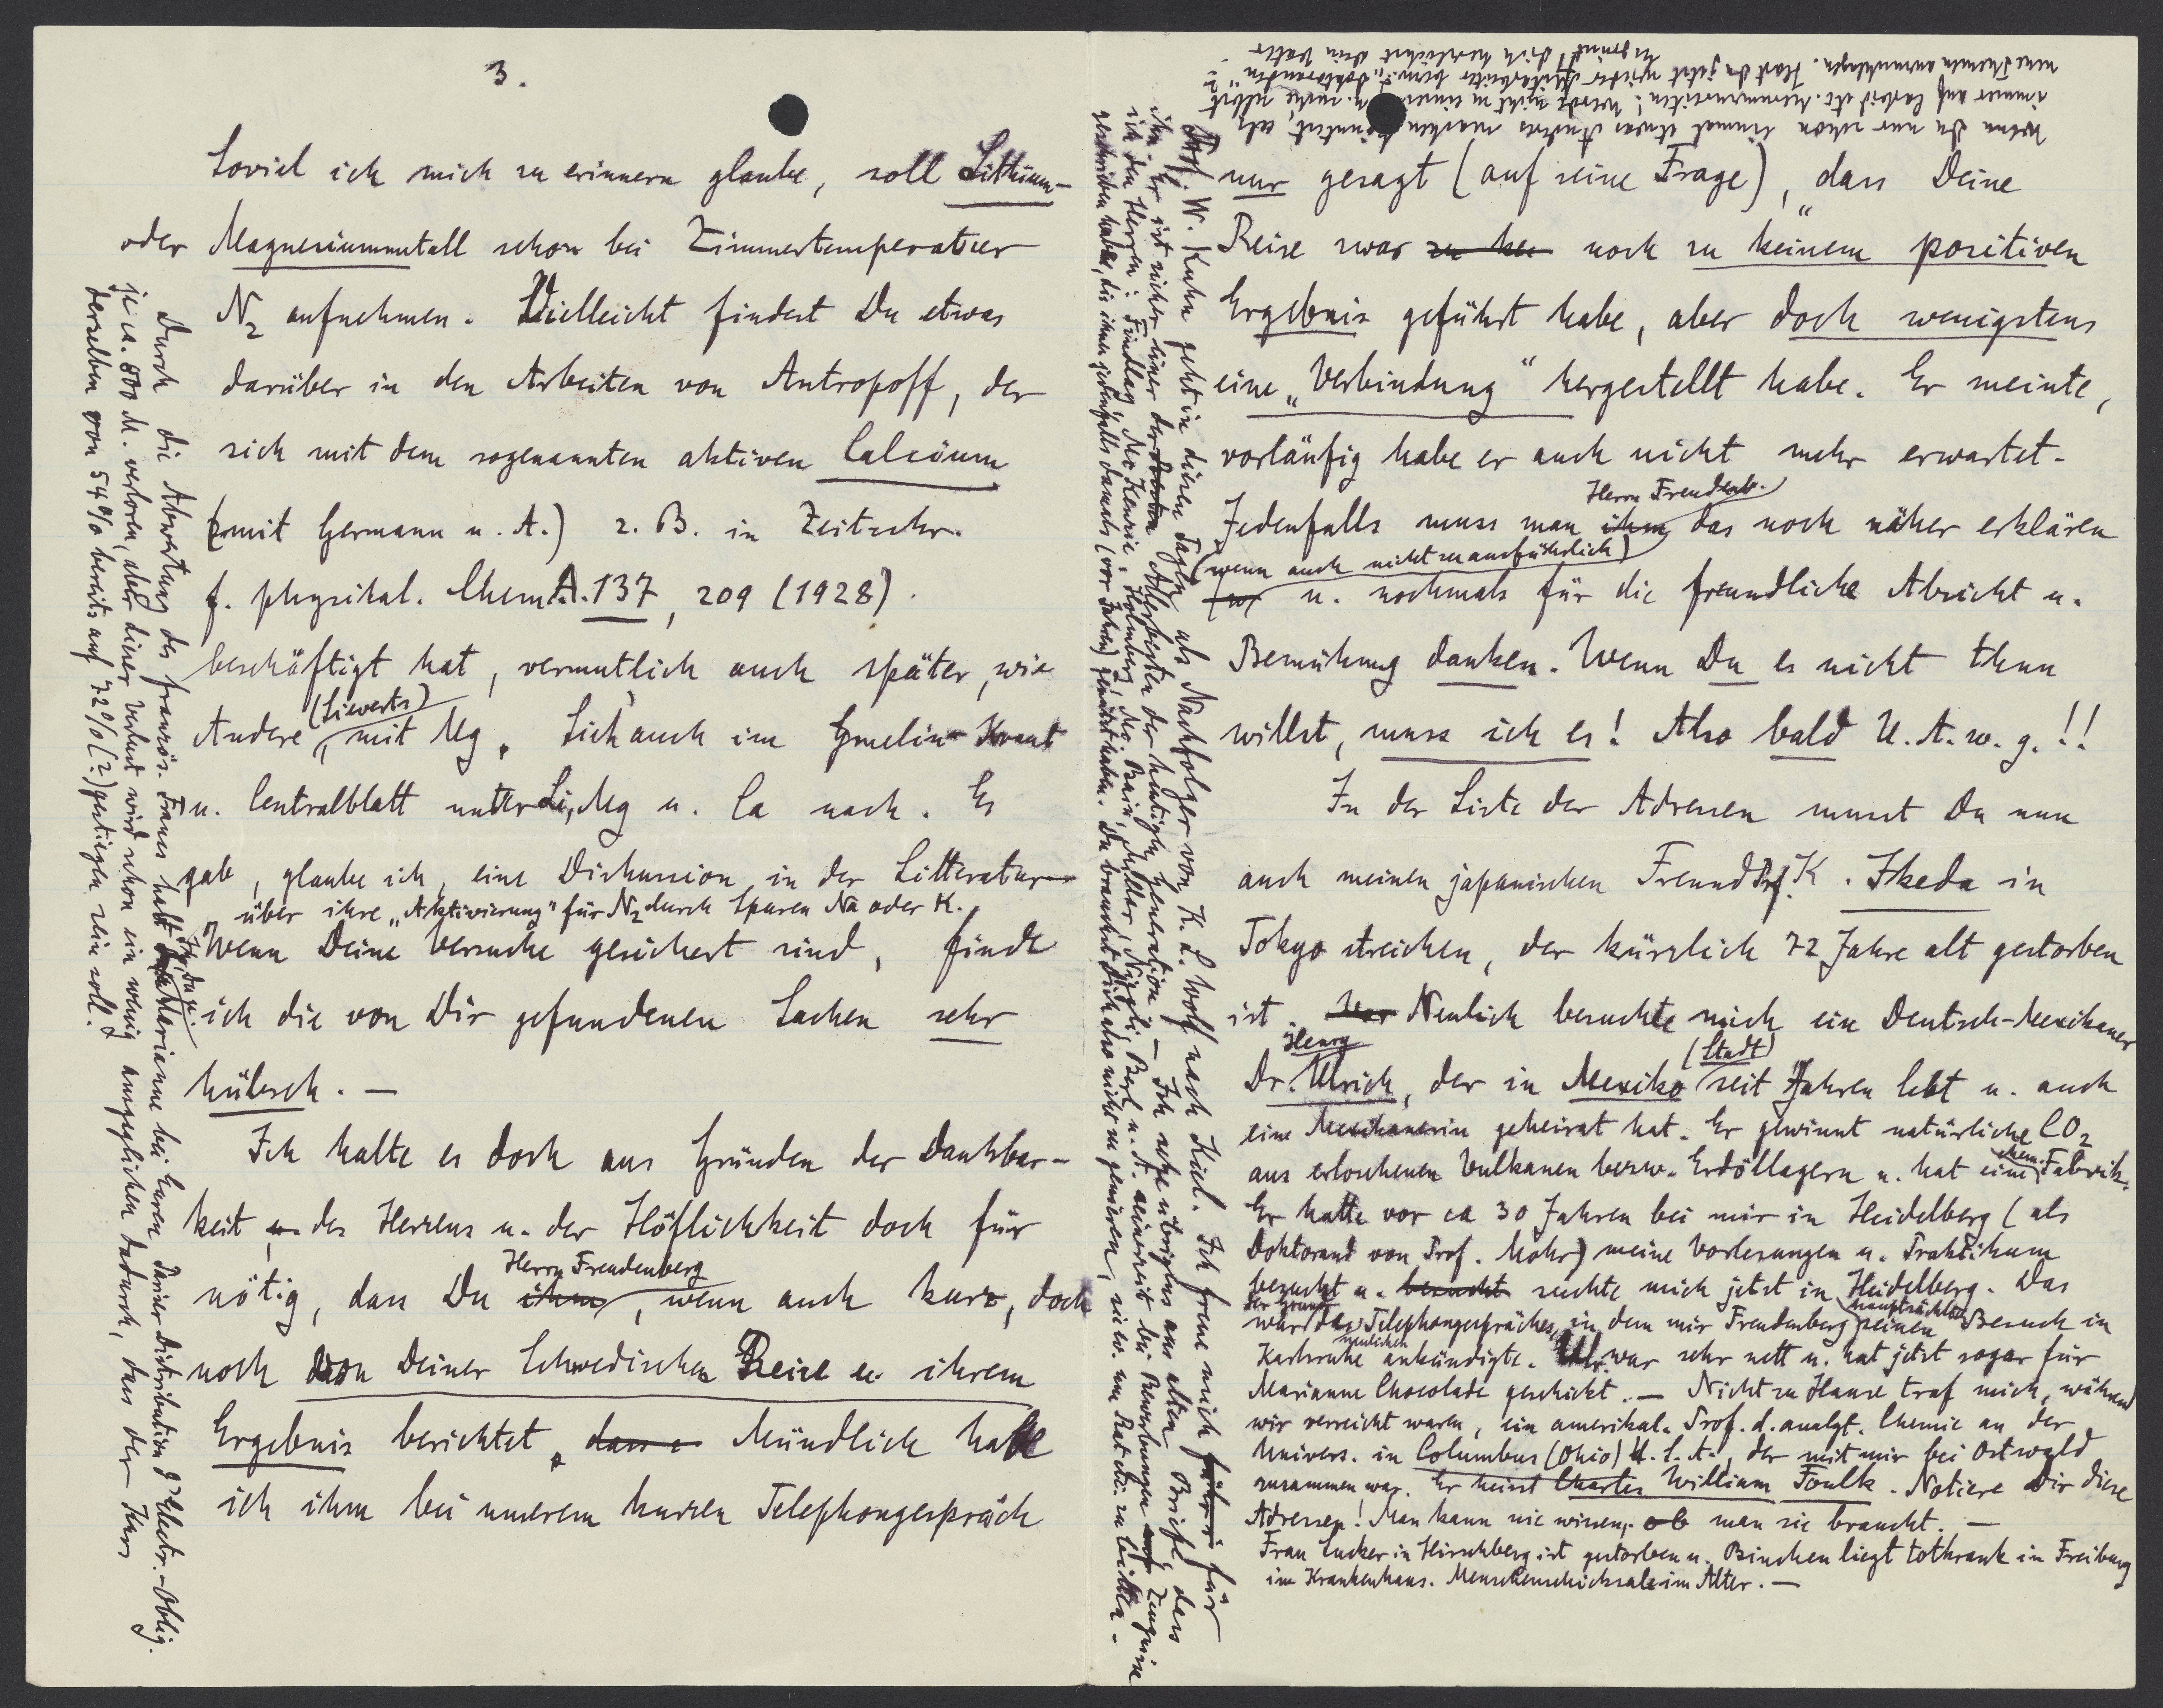 3.
Soviel ich mich zu erinnern glaube, soll Lithium-
oder Magnesiummetall schon bei Zimmertemperatur
N2 aufnehmen. Vielleicht findest Du etwas
darüber in den Arbeiten von Antropoff, der
sich mit dem sogenannten aktiven Calcium
(mit Germann u. A.) z. B. in Zeitschr.
f. physikal. Chem. A. 137, 209 (1928).
beschäftigt hat, vermutlich auch später, wie
Andere (Sieverts), mit Mg. Sieh auch im Gmelin-Kraut
u. Centralblatt unter Li, Mg u. Ca nach. Es
gab, glaube ich, eine Diskussion in der Litteratur
über ihre „Aktivierung" für N2 durch Spuren Na oder K.
Wenn Deine Versuche gesichert sind, finde
ich die von Dir gefundenen Sachen sehr
hübsch. —
Ich halte es doch aus Gründen der Dankbar-
keit u. des Herzens u. der Höflichkeit doch für
nötig, dass Du ihm Herrn Freudenberg, wenn auch kurz, doch
noch von Deiner Schwedischen Reise u. ihrem
Ergebnis berichtet. dass e Mündlich habe
ich ihm bei unserem kurzen Telephongespräch
Durch die Abwertung des französ. Francs hatt Ihr, Du u. Marianne bei Euren Pariser Distribution d'Electr.-Oblig.
je ca. 500 M. verloren, aber dieser Verlust wird schon ein wenig ausgeglichen dadurch, dass der Kurs
derselben von 54% bereits auf 72% (?) gestiegen sein soll.
nur gesagt (auf seine Frage), „dass Deine
Reise zwar zu kei noch zu keinem positiven
Ergebnis geführt habe, aber doch wenigstens
eine „Verbindung" hergestellt habe. Er meinte,
vorläufig habe er auch nicht mehr erwartet.
Jedenfalls muss man ihm Herrn Freudenb. das noch näher erklären
(wenn auch nicht zu ausführlich)
u. nochmals für die freundliche Absicht u.
Bemühung danken. Wenn Du es nicht thun
willst, muss ich es! Also bald U. A. w. g.!!
In der Liste der Adressen musst Du nun
auch meinen japanischen Freund Prof. K. Ikeda in
Tokyo streichen, der kürzlich 72 Jahre alt gestorben
ist. Neulich besuchte mich ein Deutsch-Mexikaner
Dr. Henry Ulrich, der in Mexiko (Stadt) seit Jahren lebt u. auch
eine Mexikanerin geheirat hat. Er gewinnt natürliche CO2
aus erloschenen Vulkanen bezw. Erdöllagern u. hat eine chem. Fabrik.
Er hatte vor ca 30 Jahren bei mir in Heidelberg (als
Doktorand von Prof. Mohr) meine Vorlesungen u. Praktikum
besucht u. besucht suchte mich jetzt in Heidelberg. Das
war der Grund des Telephongespräches, in dem mir Freudenberg hauptsächlich seinen Besuch in
Karlsruhe neulichen ankündigte. Ulr. war sehr nett u. hat jetzt sogar für
Marianne Chocolade geschickt. — Nicht zu Hause traf mich, während
wir verreicht waren, ein amerikal. Prof. d. analyt. Chemie an der
Univers. in Columbus (Ohio) U. S. A., der mit mir bei Ostwald
zusammen war. Er heisst Charles William Foulk. Notiere Dir diese
Adressen! Man kann nie wissen, ob man sie braucht. —
Frau Encker in Hirschberg ist gestorben u. Binchen liegt totkrank in Freiburg
im Krankenhaus. Menschenschicksale im Alter. —
Prof. W. Kuhn geht in diesen Tagen als Nachfolger von K. L. Wolf nach Kiel. Ich freue mich für
ihn. Er ist sicher einer der Allerbesten der heutigen Generation. — Ich sehe übrigens aus alten Briefen, dass
ich den Herren: Findlay, McKenzie, Holmberg, Mc Bain, Niggli, Berl u. A. seinerzeit bei Bewerbungen Zeugnisse
geschrieben habe, die ihnen jedenfalls damals (vor Jahren) genützt haben. Du brauchst Dich also nicht zu genieren, sie um Rat zu bitten.
Wenn Du nur schon einmal etwas Anderes machen könntest, als
immer auf Carbid etc. herumzureiten! Werde nicht zu einseitig u. suche selbst
neue Themen anzuschlagen. Hast Du jetzt wieder Mitarbeiter bezw. „Doktoranden"?
Es grüsst Dich herzlichst Dein Vater.